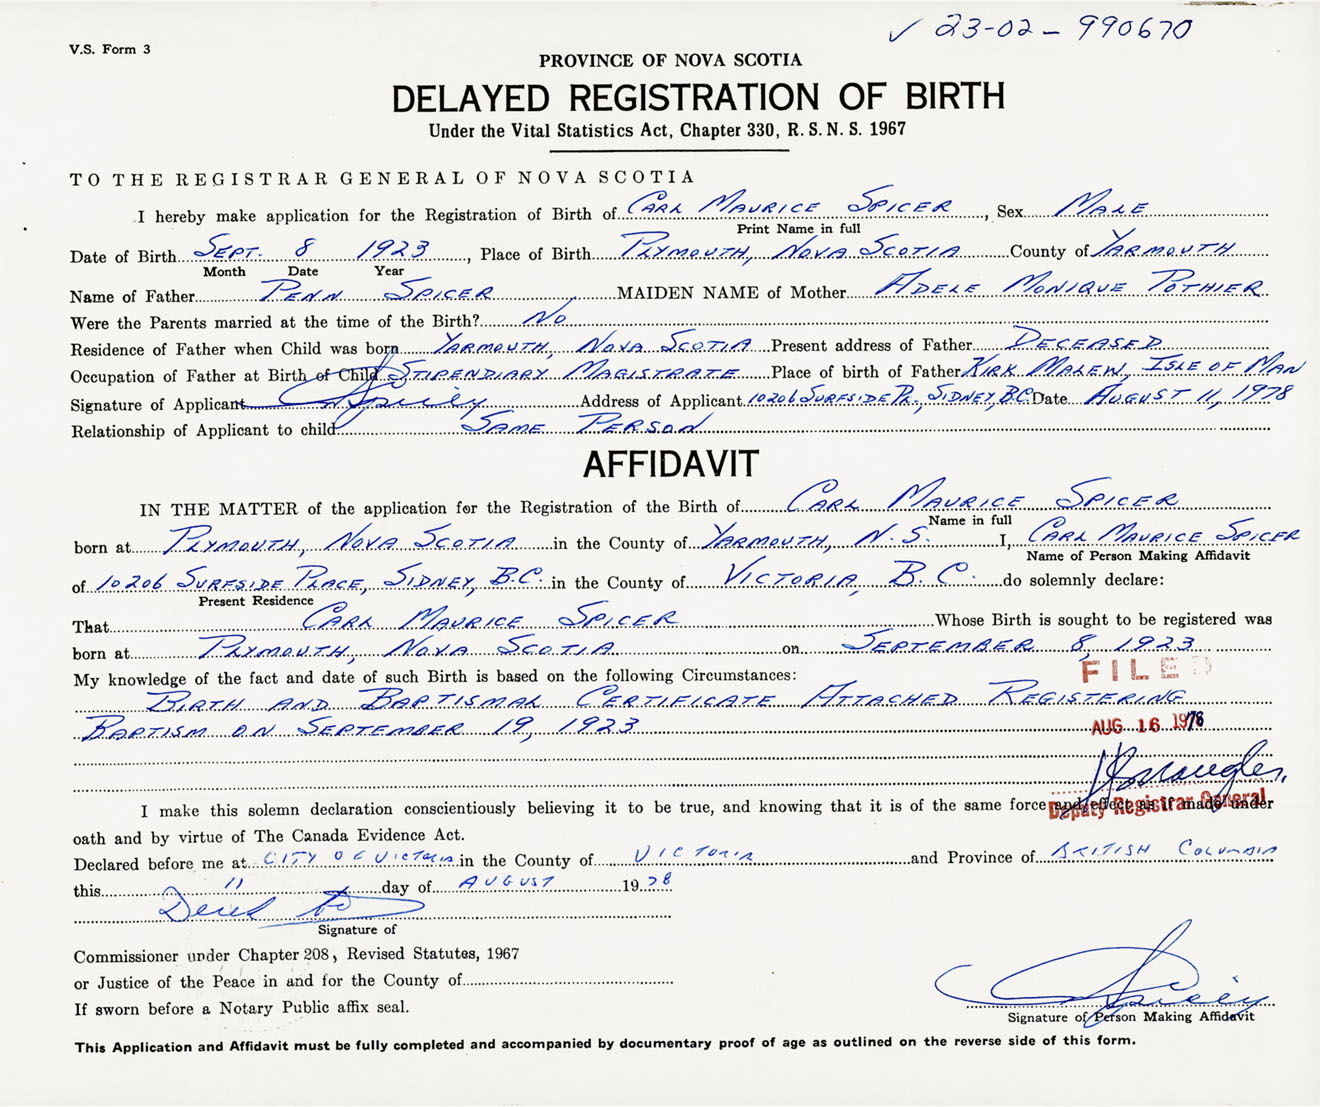 ✓ 23-02-990670
V.S. Form 3
PROVINCE OF NOVA SCOTIA
DELAYED REGISTRATION OF BIRTH
Under the Vital Statistics Act, Chapter 330, R. S. N. S. 1967
TO THE REGISTRAR GENERAL OF NOVA SCOTIA
I hereby make application for the Registration of Birth of CARL MAURICE SPICER, Sex MALE
Print Name in full
Date of Birth SEPT. 8 1923, Place of Birth PLYMOUTH, NOVA SCOTIA County of YARMOUTH
Month Date Year
Name of Father PENN SPICER MAIDEN NAME of Mother ADELE MONIQUE POTHIER
Were the Parents married at the time of the Birth? NO
Residence of Father when Child was born YARMOUTH, NOVA SCOTIA Present address of Father DECEASED
Occupation of Father at Birth of Child STIPENDIARY MAGISTRATE Place of birth of Father KIRK MALEW, ISLE OF MAN
Signature of Applicant Address of Applicant 10206 SURFSIDE PL., SIDNEY, B.C. Date AUGUST 11, 1978
Relationship of Applicant to child SAME PERSON
AFFIDAVIT
IN THE MATTER of the application for the Registration of the Birth of CARL MAURICE SPICER
Name in full
born at PLYMOUTH, NOVA SCOTIA in the County of YARMOUTH, N.S. I, CARL MAURICE SPICER
Name of Person Making Affidavit
of 10206 SURFSIDE PLACE, SIDNEY, B.C. in the County of VICTORIA, B.C. do solemnly declare:
Present Residence
That CARL MAURICE SPICER Whose Birth is sought to be registered was
born at PLYMOUTH, NOVA SCOTIA on SEPTEMBER 8, 1923
My knowledge of the fact and date of such Birth is based on the following Circumstances:
FILED
BIRTH AND BAPTISMAL CERTIFICATE ATTACHED REGISTERING
BAPTISM ON SEPTEMBER 19, 1923
AUG 16 1978
I make this solemn declaration conscientiously believing it to be true, and knowing that it is of the same force and effect as if made under
Deputy Registrar General
oath and by virtue of The Canada Evidence Act.
Declared before me at CITY OF VICTORIA in the County of VICTORIA and Province of BRITISH COLUMBIA
this 11 day of AUGUST 1978
Derek
Signature of
Commissioner under Chapter 208, Revised Statutes, 1967
or Justice of the Peace in and for the County of
If sworn before a Notary Public affix seal.
Signature of Person Making Affidavit
This Application and Affidavit must be fully completed and accompanied by documentary proof of age as outlined on the reverse side of this form.